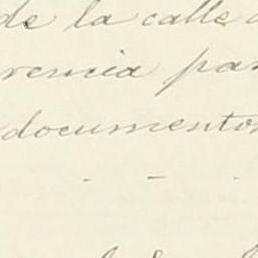 de la calle
rencia par
documentos